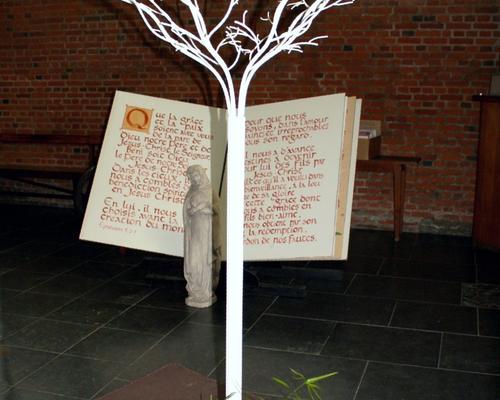 Que la grâce
et la paix
soient avec vous
de la part de
Dieu notre père et de
Jésus Christ le Seigneur
béni soit Dieu
le père de notre
Jésus Christ
Dans les cieux, il
nous a comblés
bénédiction
en Jésus Christ
En lui, il nous
choisis avant la
création du mon
pour que nous
soyons, dans l'amour
et irréprochables
sous son regard.
il nous a d'avance
destinés à devenir
pour lui des fils par
Jésus Christ
qu'il a voulu dans
bienveillance, à la lou
de sa gloire
cette grâce dont
nous a comblés en
fils bien-aimé,
nous obtient par son
la rédemption,
pardon de nos fautes.